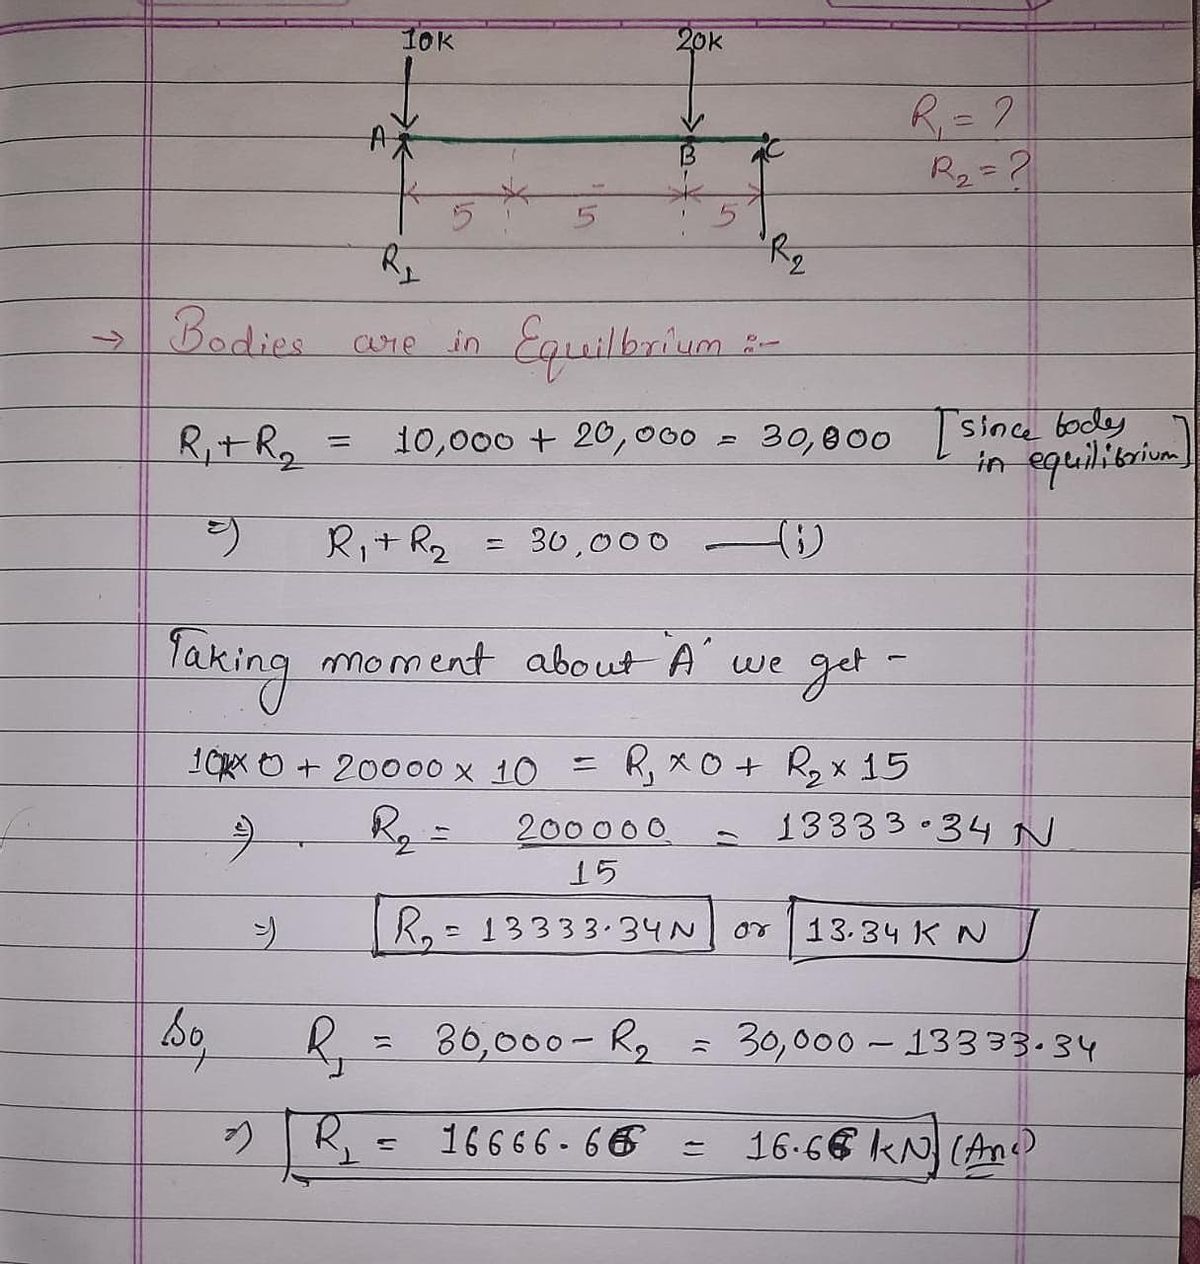 10K 20K
R₁ = ?
A B C
R₂ = ?
5 5 5
R₁ R₂
→ Bodies are in Equilbrium :-
R₁ + R₂ = 10,000 + 20,000 = 30,000 [since body in equilibrium]
⇒ R₁ + R₂ = 30,000 —(i)
Taking moment about 'A' we get -
10K × 0 + 20000 × 10 = R₁ × 0 + R₂ × 15
⇒ R₂ = 200000 / 15 = 13333.34 N
⇒ R₂ = 13333.34 N or 13.34 K N
So, R₁ = 30,000 - R₂ = 30,000 - 13333.34
⇒ R₁ = 16666.66 = 16.66 kN (Ans)